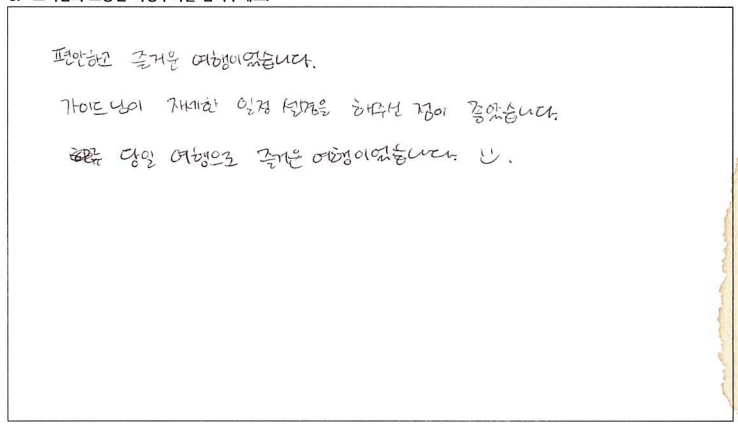 편안하고 즐거운 여행이었습니다.
가이드님이 자세한 일정 설명을 해주신 점이 좋았습니다.
당일 여행으로 즐거운 여행이었습니다. :)